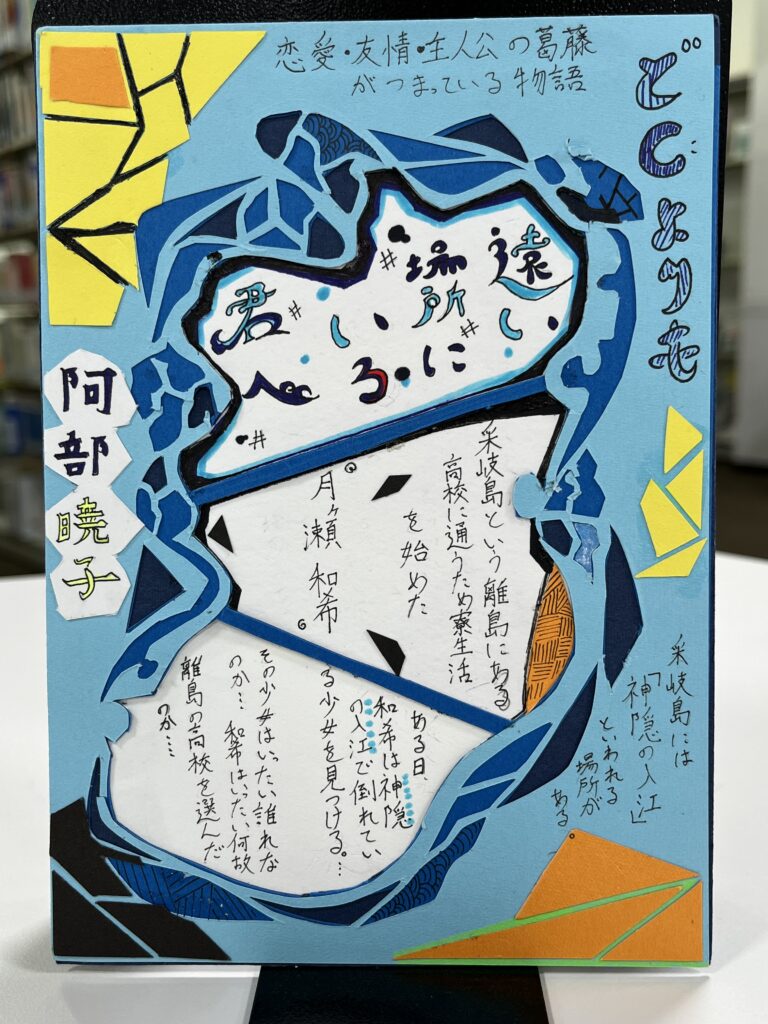 恋愛・友情・主人公の葛藤
がつまっている物語
どこよりも
遠い
場所に
いる
君へ
阿部暁子
采岐島という離島にある
高校に通うため寮生活
を始めた
月ヶ瀬 和希
采岐島には
「神隠の入江」
といわれる
場所が
ある。
ある日、
和希は神隠
の入江で倒れてい
る少女を見つける。…
その少女はいったい誰れな
のか… 和希はいったい何故
離島の高校を選んだ
のか…